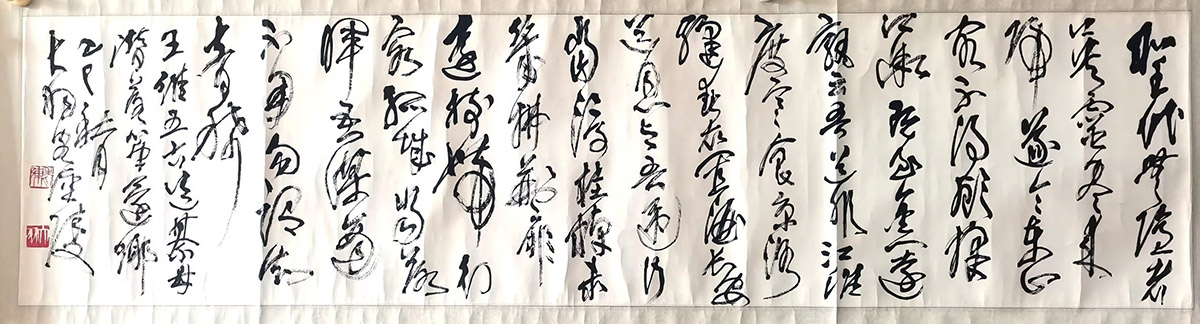 聖代無隱者
英靈盡來
歸遂令東山
客不得顧採
薇既至金門遠
孰云吾道非江淮
度寒食京洛
縫春衣置酒長安
道同心與我違行
當浮桂棹未
幾拂荊扉
遠樹帶行
客孤城當落
暉吾謀適
不用勿謂知
音稀
王維五古送綦毋
潛落第還鄉
乙巳秋月